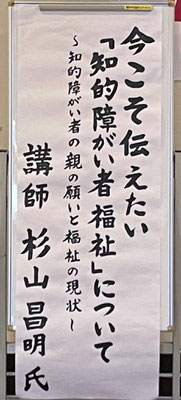 今こそ伝えたい
「知的障がい者福祉」について
～知的障がい者の親の願いと福祉の現状～
講師 杉山昌明氏